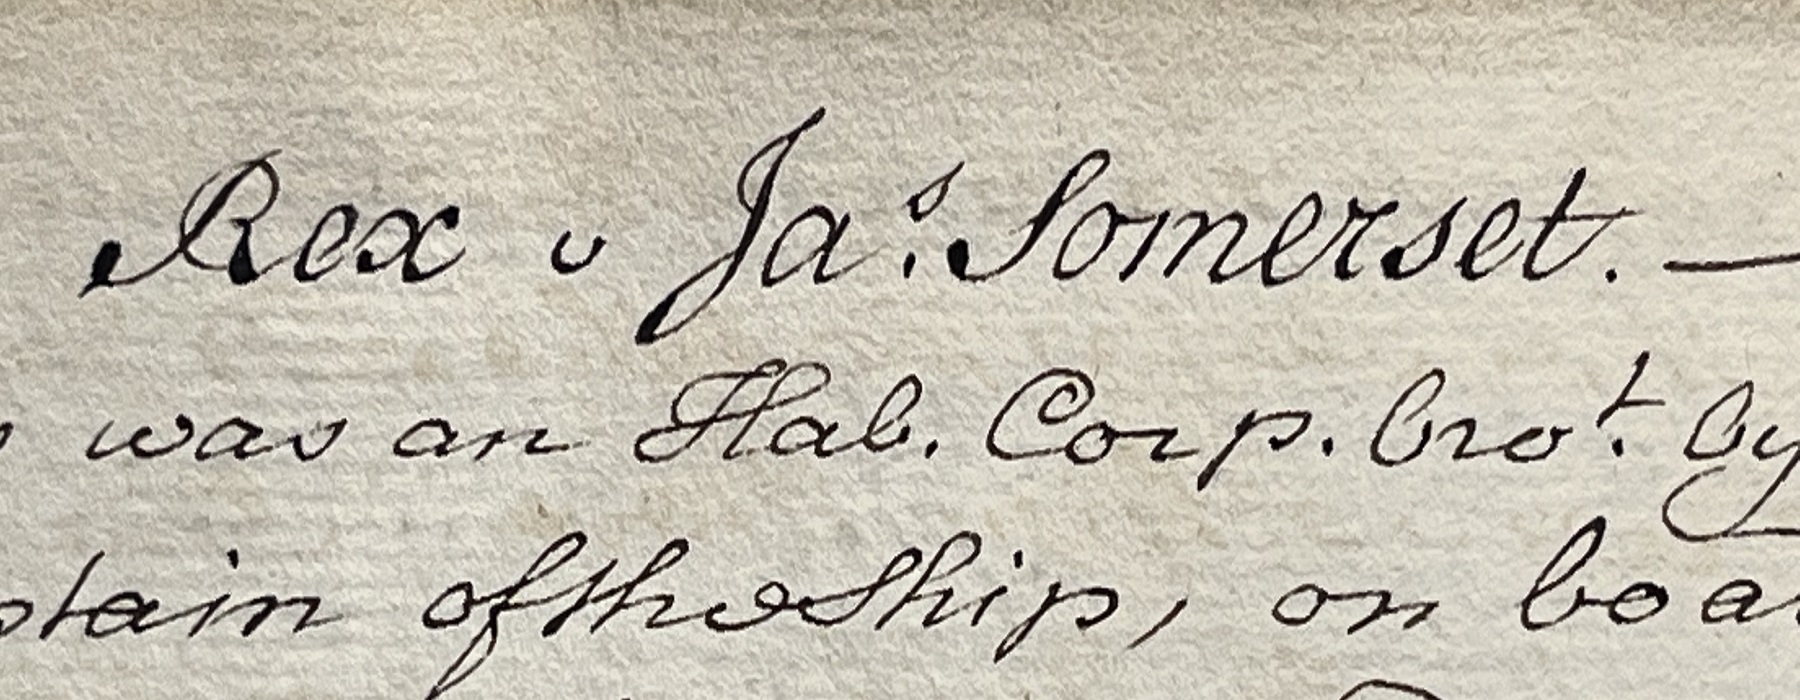 Rex v Ja.s Somerset. —
was an Hab. Corp. bro.t by
ptain of the Ship, on boa